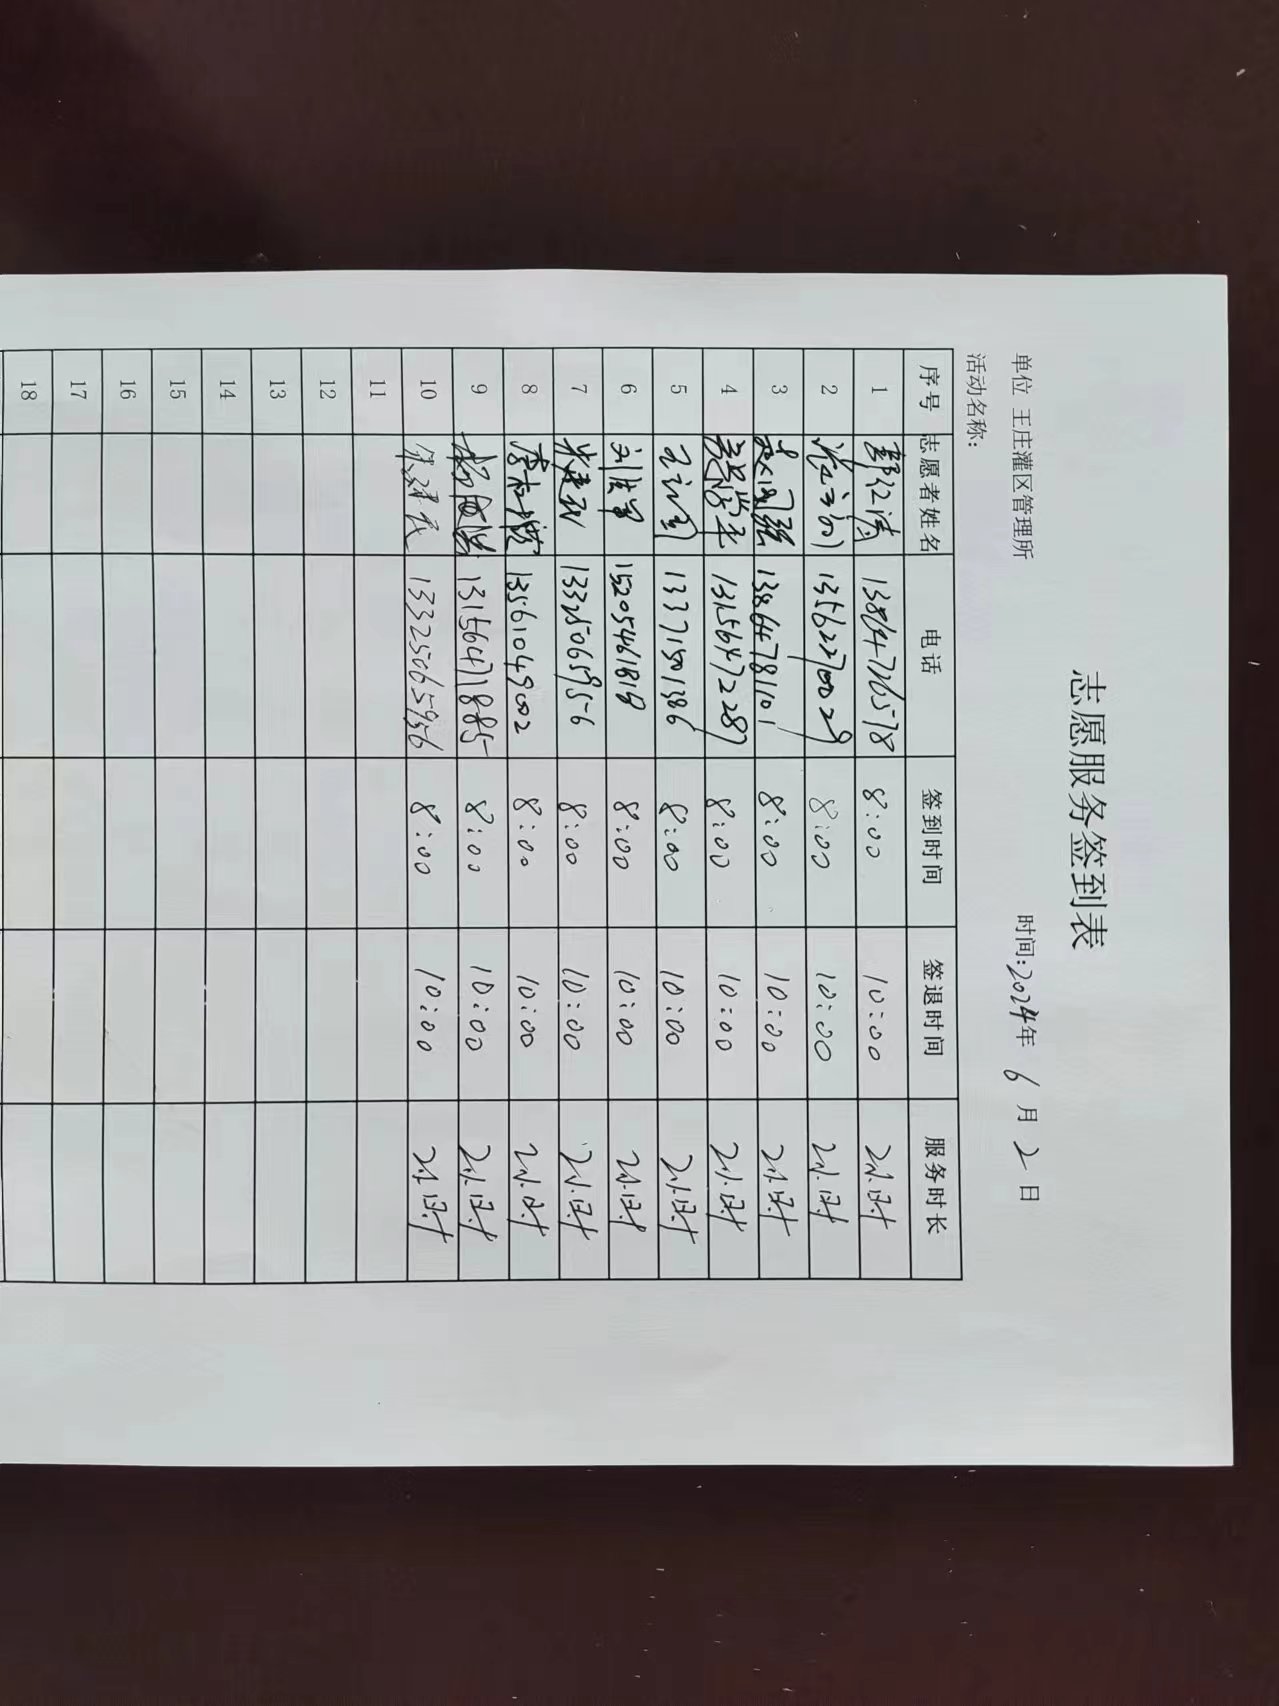 志愿服务签到表
单位 王庄灌区管理所 时间:2024年 6 月 2 日
活动名称:
序号 志愿者姓名 电话 签到时间 签退时间 服务时长
1 8:00 10:00 2小时
2 13562270029 8:00 10:00 2小时
3 13864781101 8:00 10:00 2小时
4 13156472287 8:00 10:00 2小时
5 13371501386 8:00 10:00 2小时
6 15205461818 8:00 10:00 2小时
7 13325065956 8:00 10:00 2小时
8 13561049002 8:00 10:00 2小时
9 13156471885 8:00 10:00 2小时
10 13325065936 8:00 10:00 2小时
11
12
13
14
15
16
17
18